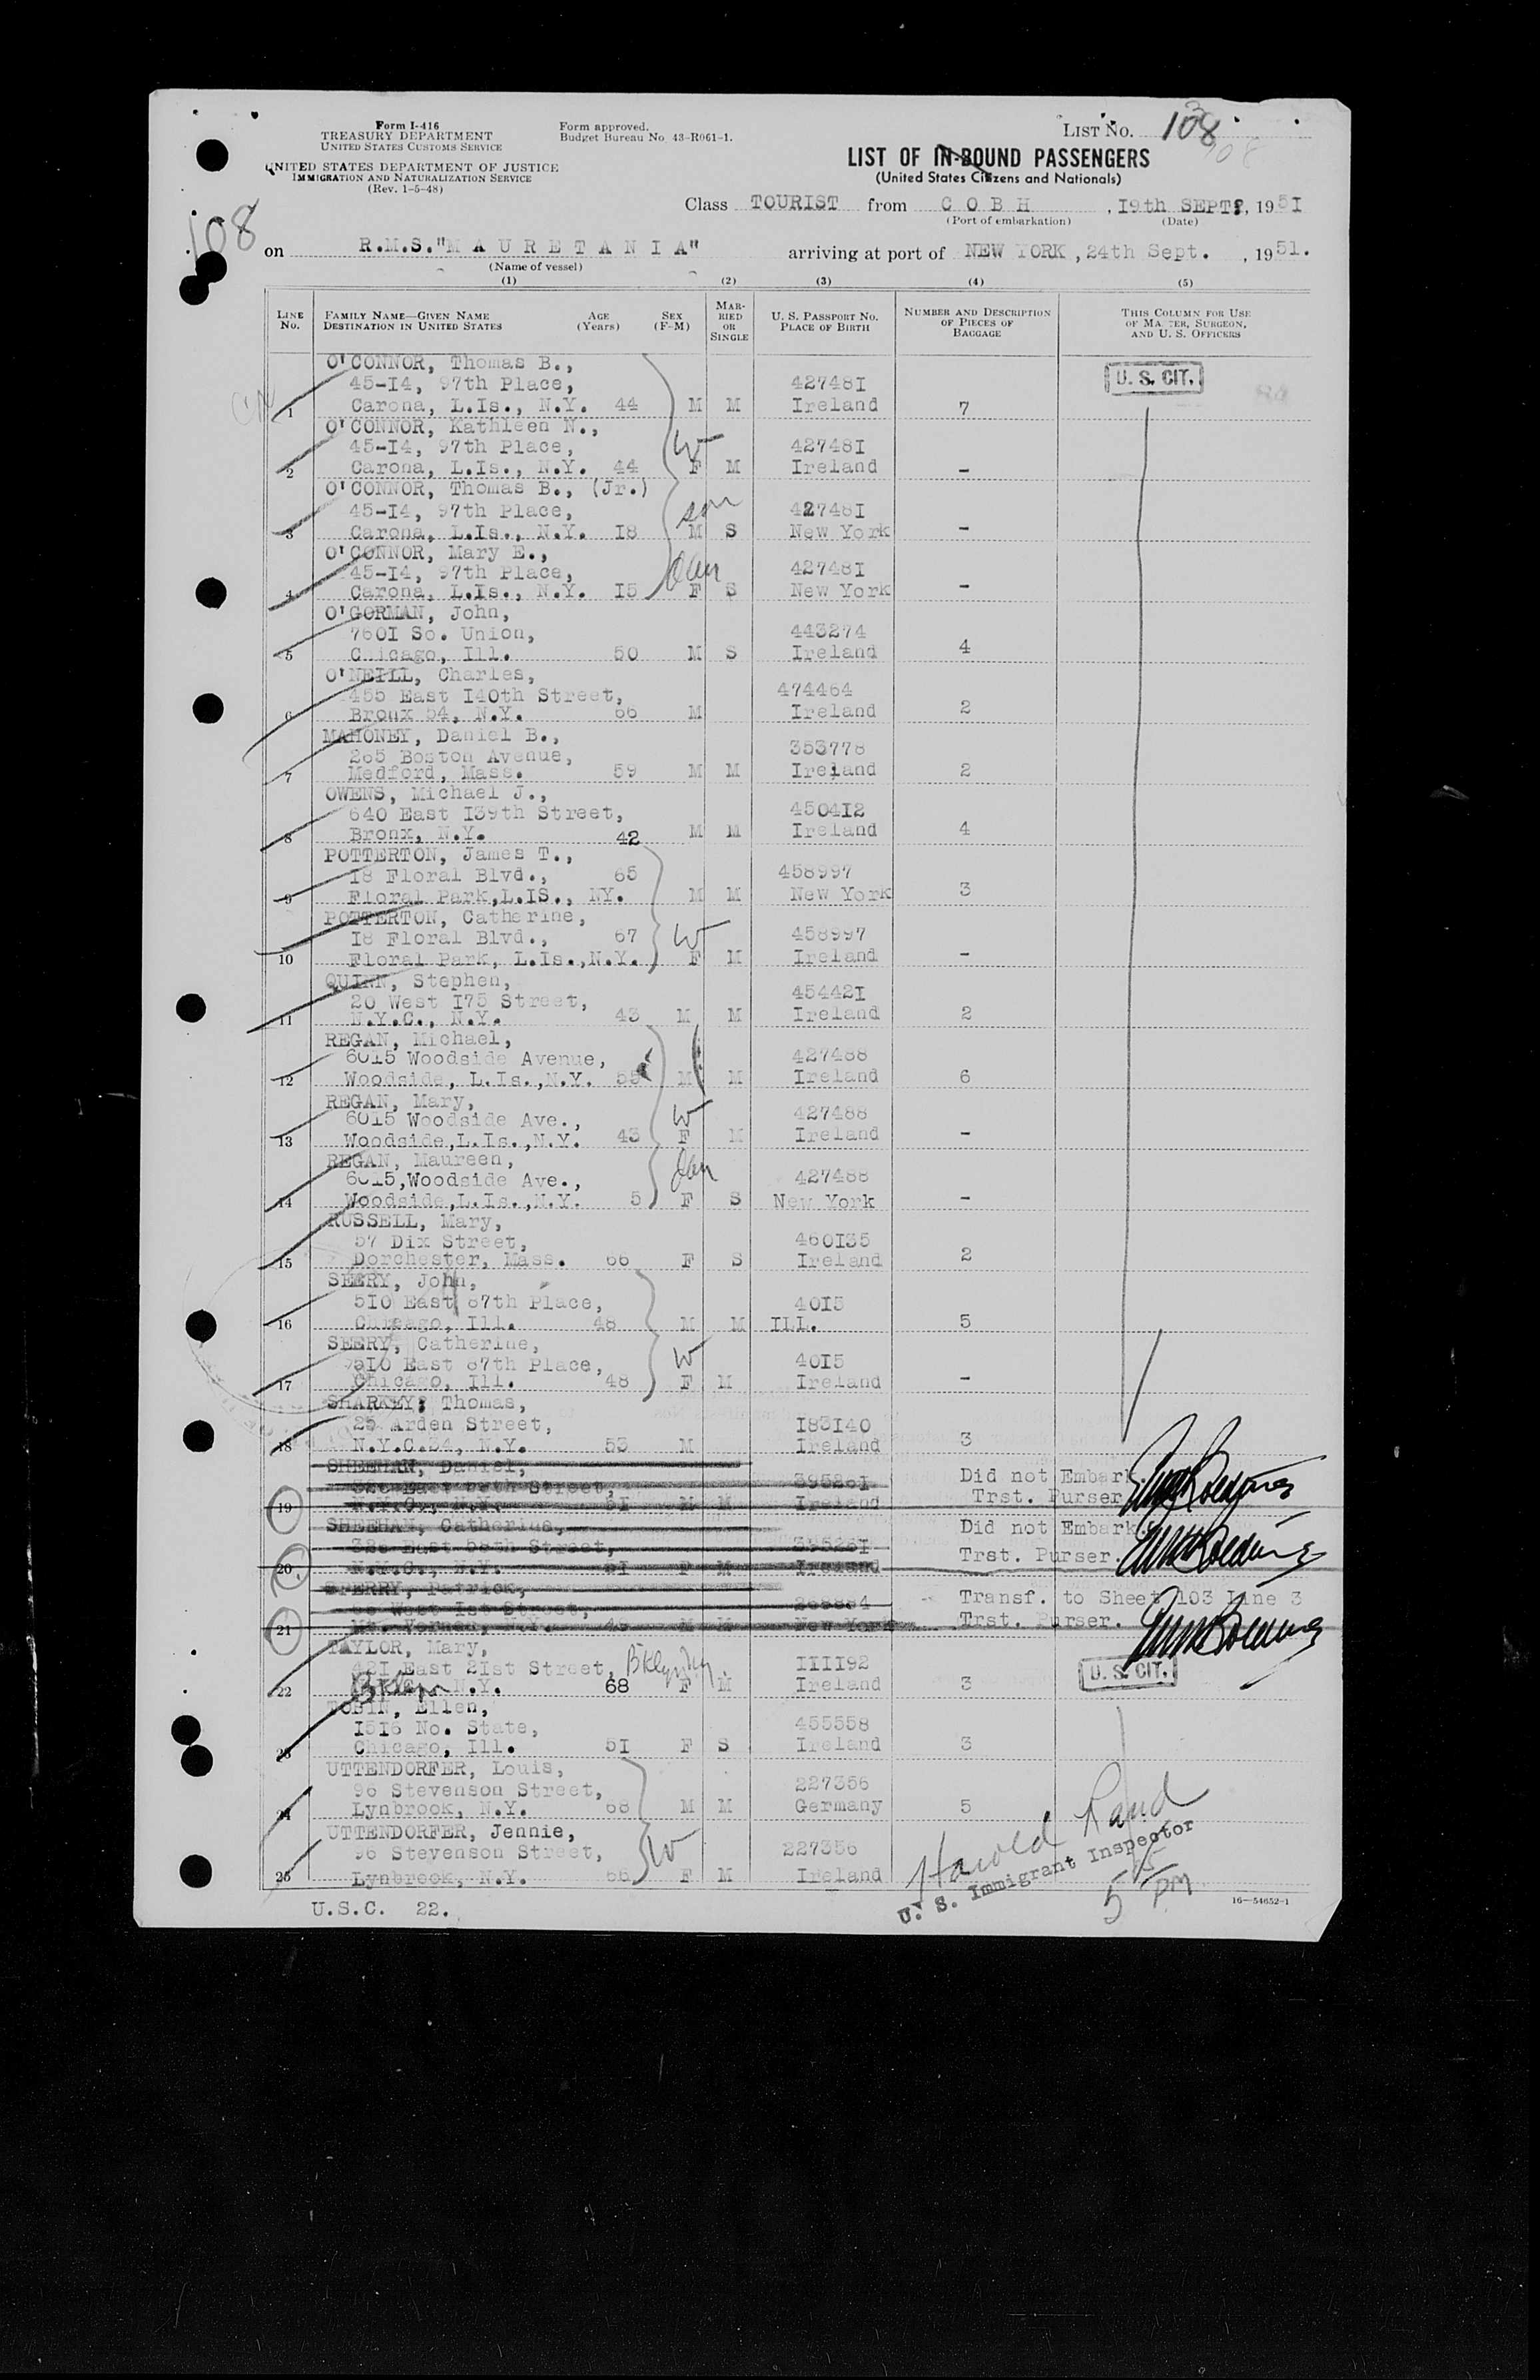 Form I-416
TREASURY DEPARTMENT
UNITED STATES CUSTOMS SERVICE
UNITED STATES DEPARTMENT OF JUSTICE
IMMIGRATION AND NATURALIZATION SERVICE
(Rev. 1-5-48)
Form approved.
Budget Bureau No. 43-R061-1.
LIST No. 108
LIST OF IN-BOUND PASSENGERS
(United States Citizens and Nationals)
108
Class TOURIST from C O B H , 19th SEPT., 1951
(Port of embarkation) (Date)
on R.M.S."M A U R E T A N I A" arriving at port of NEW YORK, 24th Sept. , 1951.
(Name of vessel)
(1) (2) (3) (4) (5)
LINE No. FAMILY NAME—GIVEN NAME DESTINATION IN UNITED STATES AGE (Years) SEX (F-M) MARRIED OR SINGLE U. S. PASSPORT NO. PLACE OF BIRTH NUMBER AND DESCRIPTION OF PIECES OF BAGGAGE THIS COLUMN FOR USE OF MASTER, SURGEON, AND U. S. OFFICERS
O'CONNOR, Thomas B.,
45-I4, 97th Place, 42748I U. S. CIT.
1 Carona, L.Is., N.Y. 44 M M Ireland 7
O'CONNOR, Kathleen N.,
45-I4, 97th Place, W 42748I
2 Carona, L.Is., N.Y. 44 F M Ireland -
O'CONNOR, Thomas B., (Jr.)
45-I4, 97th Place, son 42748I
3 Carona, L.Is., N.Y. I8 M S New York -
O'CONNOR, Mary E.,
45-I4, 97th Place, dau 42748I
4 Carona, L.Is., N.Y. I5 F S New York -
O'GORMAN, John,
760I So. Union, 443274
5 Chicago, Ill. 50 M S Ireland 4
O'NEILL, Charles,
455 East I40th Street, 474464
6 Bronx 54, N.Y. 66 M Ireland 2
MAHONEY, Daniel B.,
265 Boston Avenue, 353778
7 Medford, Mass. 59 M M Ireland 2
OWENS, Michael J.,
640 East I39th Street, 4504I2
8 Bronx, N.Y. 42 M M Ireland 4
POTTERTON, James T.,
I8 Floral Blvd., 65 458997
9 Floral Park,L.IS., NY. M M New York 3
POTTERTON, Catherine,
I8 Floral Blvd., 67 W 458997
10 Floral Park, L.Is.,N.Y. F M Ireland -
QUINN, Stephen,
20 West I75 Street, 45442I
11 N.Y.C., N.Y. 43 M M Ireland 2
REGAN, Michael,
6015 Woodside Avenue, 427488
12 Woodside, L.Is.,N.Y. 55 M M Ireland 6
REGAN, Mary,
6015 Woodside Ave., W 427488
13 Woodside,L.Is.,N.Y. 43 F M Ireland -
REGAN, Maureen,
6015,Woodside Ave., dau 427488
14 Woodside,L.Is.,N.Y. 5 F S New York -
RUSSELL, Mary,
57 Dix Street, 460I35
15 Dorchester, Mass. 66 F S Ireland 2
SEERY, John,
5I0 East 87th Place, 40I5
16 Chicago, Ill. 48 M M ILL. 5
SEERY, Catherine,
5I0 East 87th Place, W 40I5
17 Chicago, Ill. 48 F M Ireland -
SHARKEY, Thomas,
25 Arden Street, I83I40
18 N.Y.C.34, N.Y. 53 M Ireland 3
SHEEHAN, Daniel, Did not Embark.
Street, 39526I Trst. Purser
19 N.Y.C., N.Y. 5I M M Ireland
SHEEHAN, Catherine, Did not Embark.
328 East 58th Street, 39526I Trst. Purser.
20 N.Y.C., N.Y. 5I F M Ireland
SPERRY, Patrick, Transf. to Sheet 103 Line 3
West Ist Street, Trst. Purser.
21 Mt. Vernon, N.Y. 48 M M New York
TAYLOR, Mary,
421 East 2Ist Street, Bklyn NY III192 U. S. CIT.
22 Bklyn N.Y. 68 F M Ireland 3
TOBIN, Ellen,
I5I6 No. State, 455558
23 Chicago, Ill. 5I F S Ireland 3
UTTENDORFER, Louis,
96 Stevenson Street, 227356
24 Lynbrook, N.Y. 68 M M Germany 5
UTTENDORFER, Jennie,
96 Stevenson Street, W 227356
25 Lynbrook, N.Y. 66 F M Ireland
Harold Rand
U. S. Immigrant Inspector
5 15 PM
U.S.C. 22.
16—54652-1